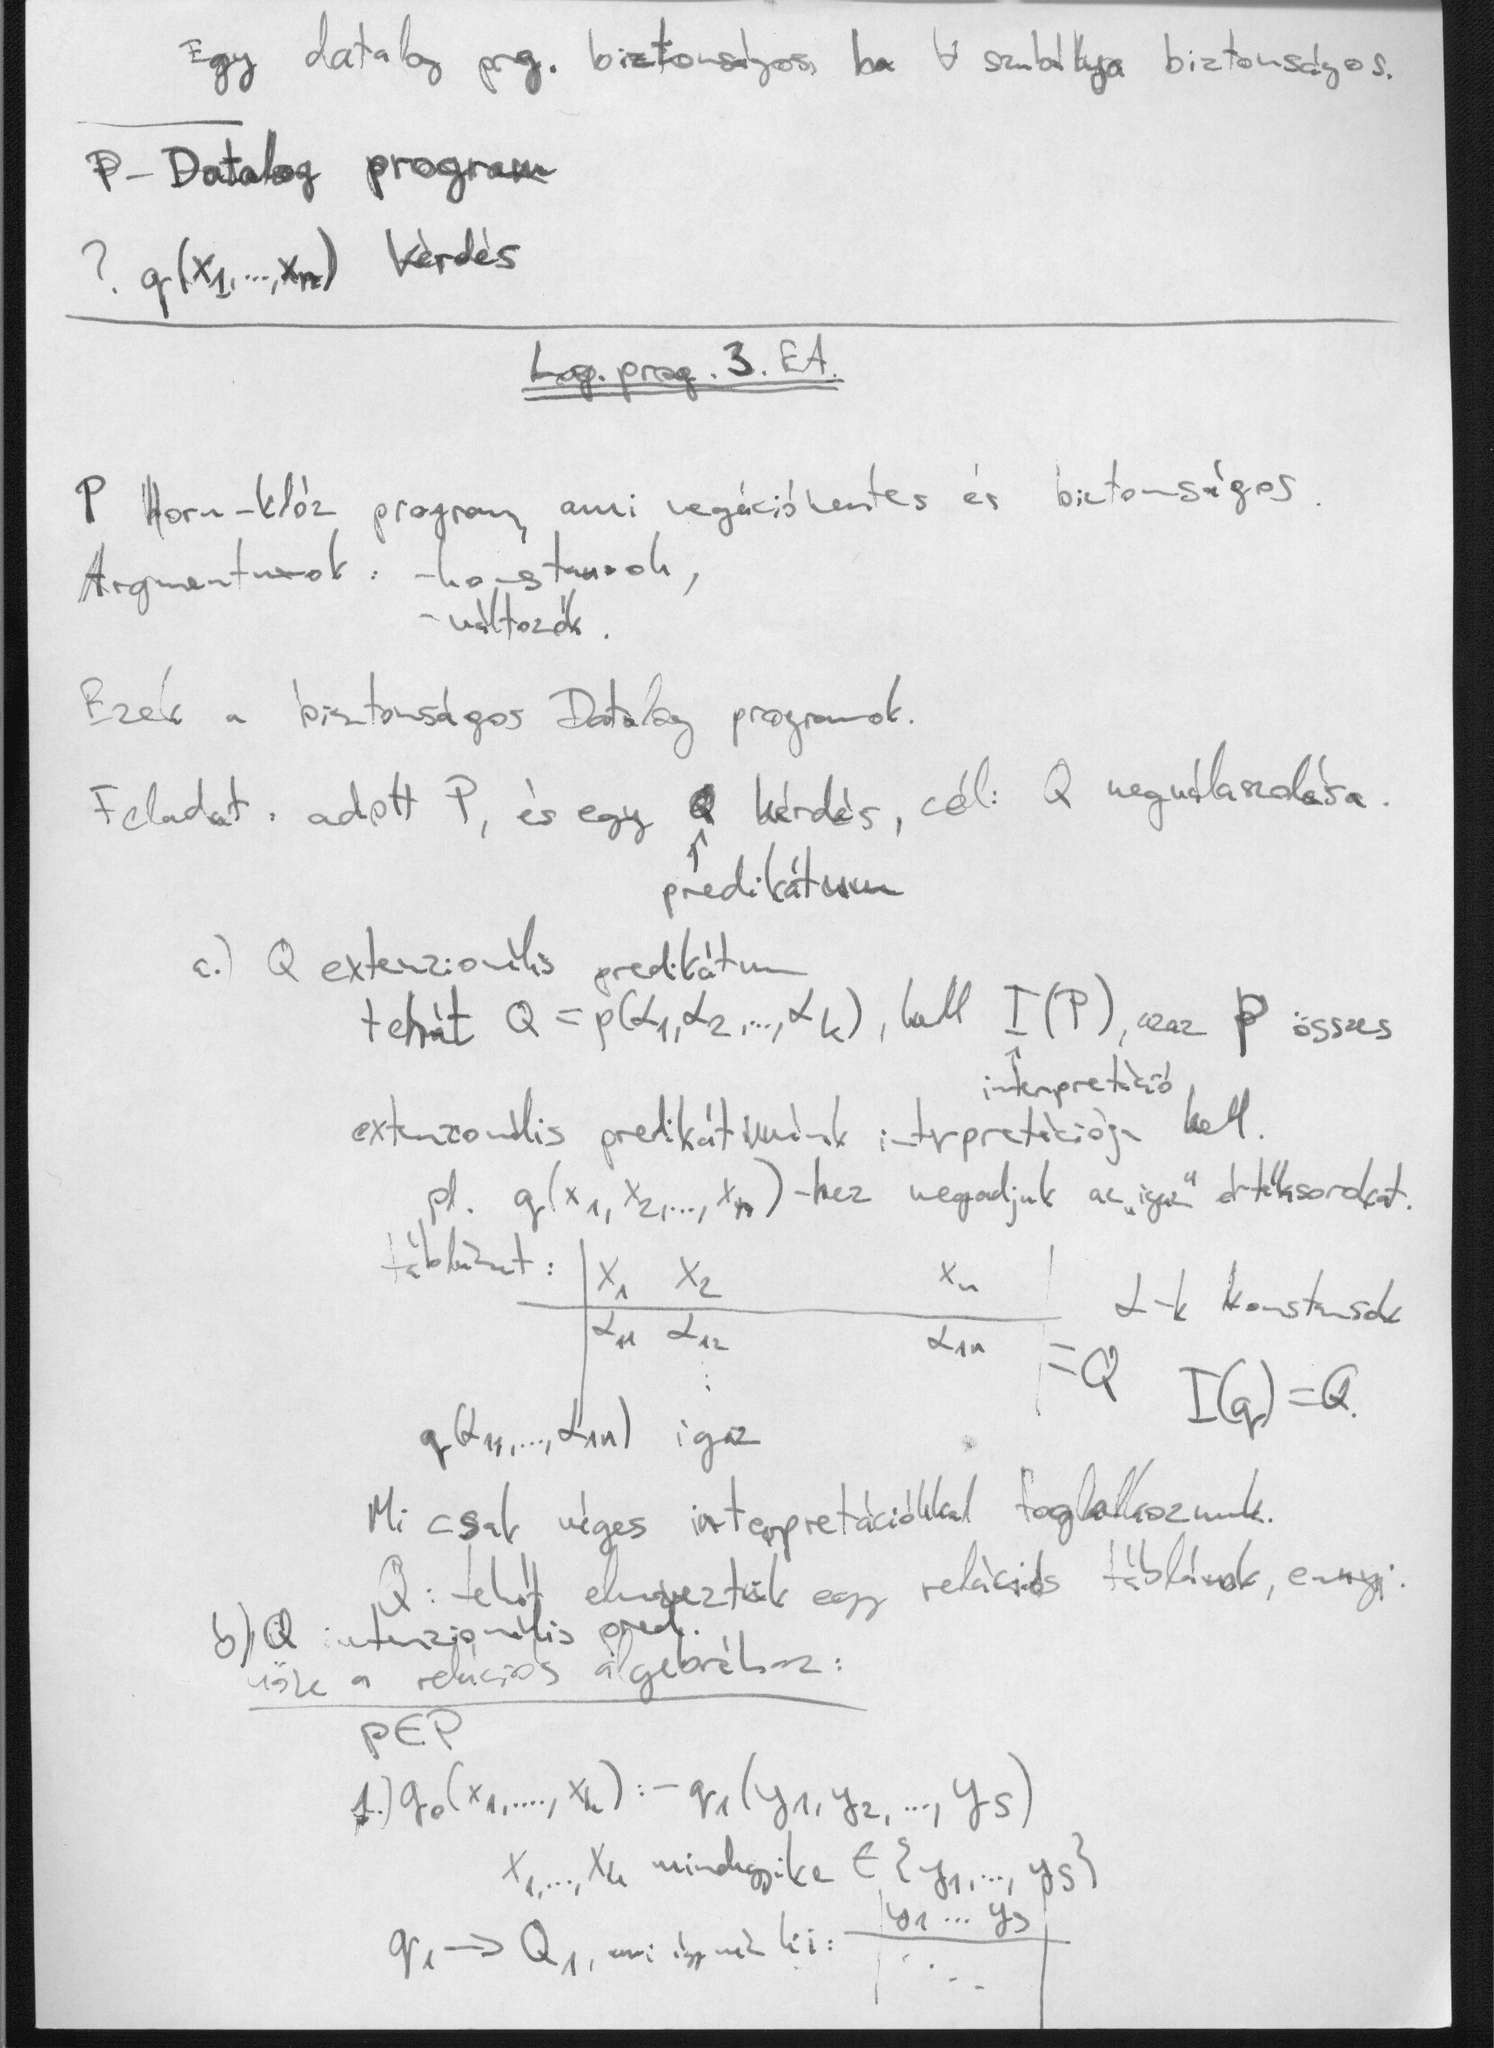 Egy datalog prg. biztonságos, ha ∀ szabálya biztonságos.
P - Datalog program
? q(x1,...,xn) kérdés
Log. prog. 3. EA.
P Horn-klóz program, ami negációmentes és biztonságos.
Argumentumok: - konstansok,
- változók.
Ezek a biztonságos Datalog programok.
Feladat: adott P, és egy Q kérdés, cél: Q megválaszolása.
↑
predikátum
a.) Q extenzionális predikátum
tehát Q = p(α1,α2,...,αk), kell I(P), azaz P összes
↑
interpretáció
extenzionális predikátumának interpretációja kell.
pl. q(x1, x2,..., xn)-hez megadjuk az „igaz" értéksorokat.
táblázat: x1 x2 xn
α11 α12 α1n = Q
α-k konstansok
I(q) = Q.
q(α11,...,α1n) igaz
Mi csak véges interpretációkkal foglalkozunk.
Q: tehát elneveztük egy relációs táblának, ennyi.
b) Q intenzionális pred.
a relációs algebrához:
p∈P
1.) q0(x1,...,xk) :- q1(y1,y2,...,ys)
x1,...,xk mindegyike ∈ {y1,...,ys}
q1 → Q1, ami így néz ki: y1 ... ys